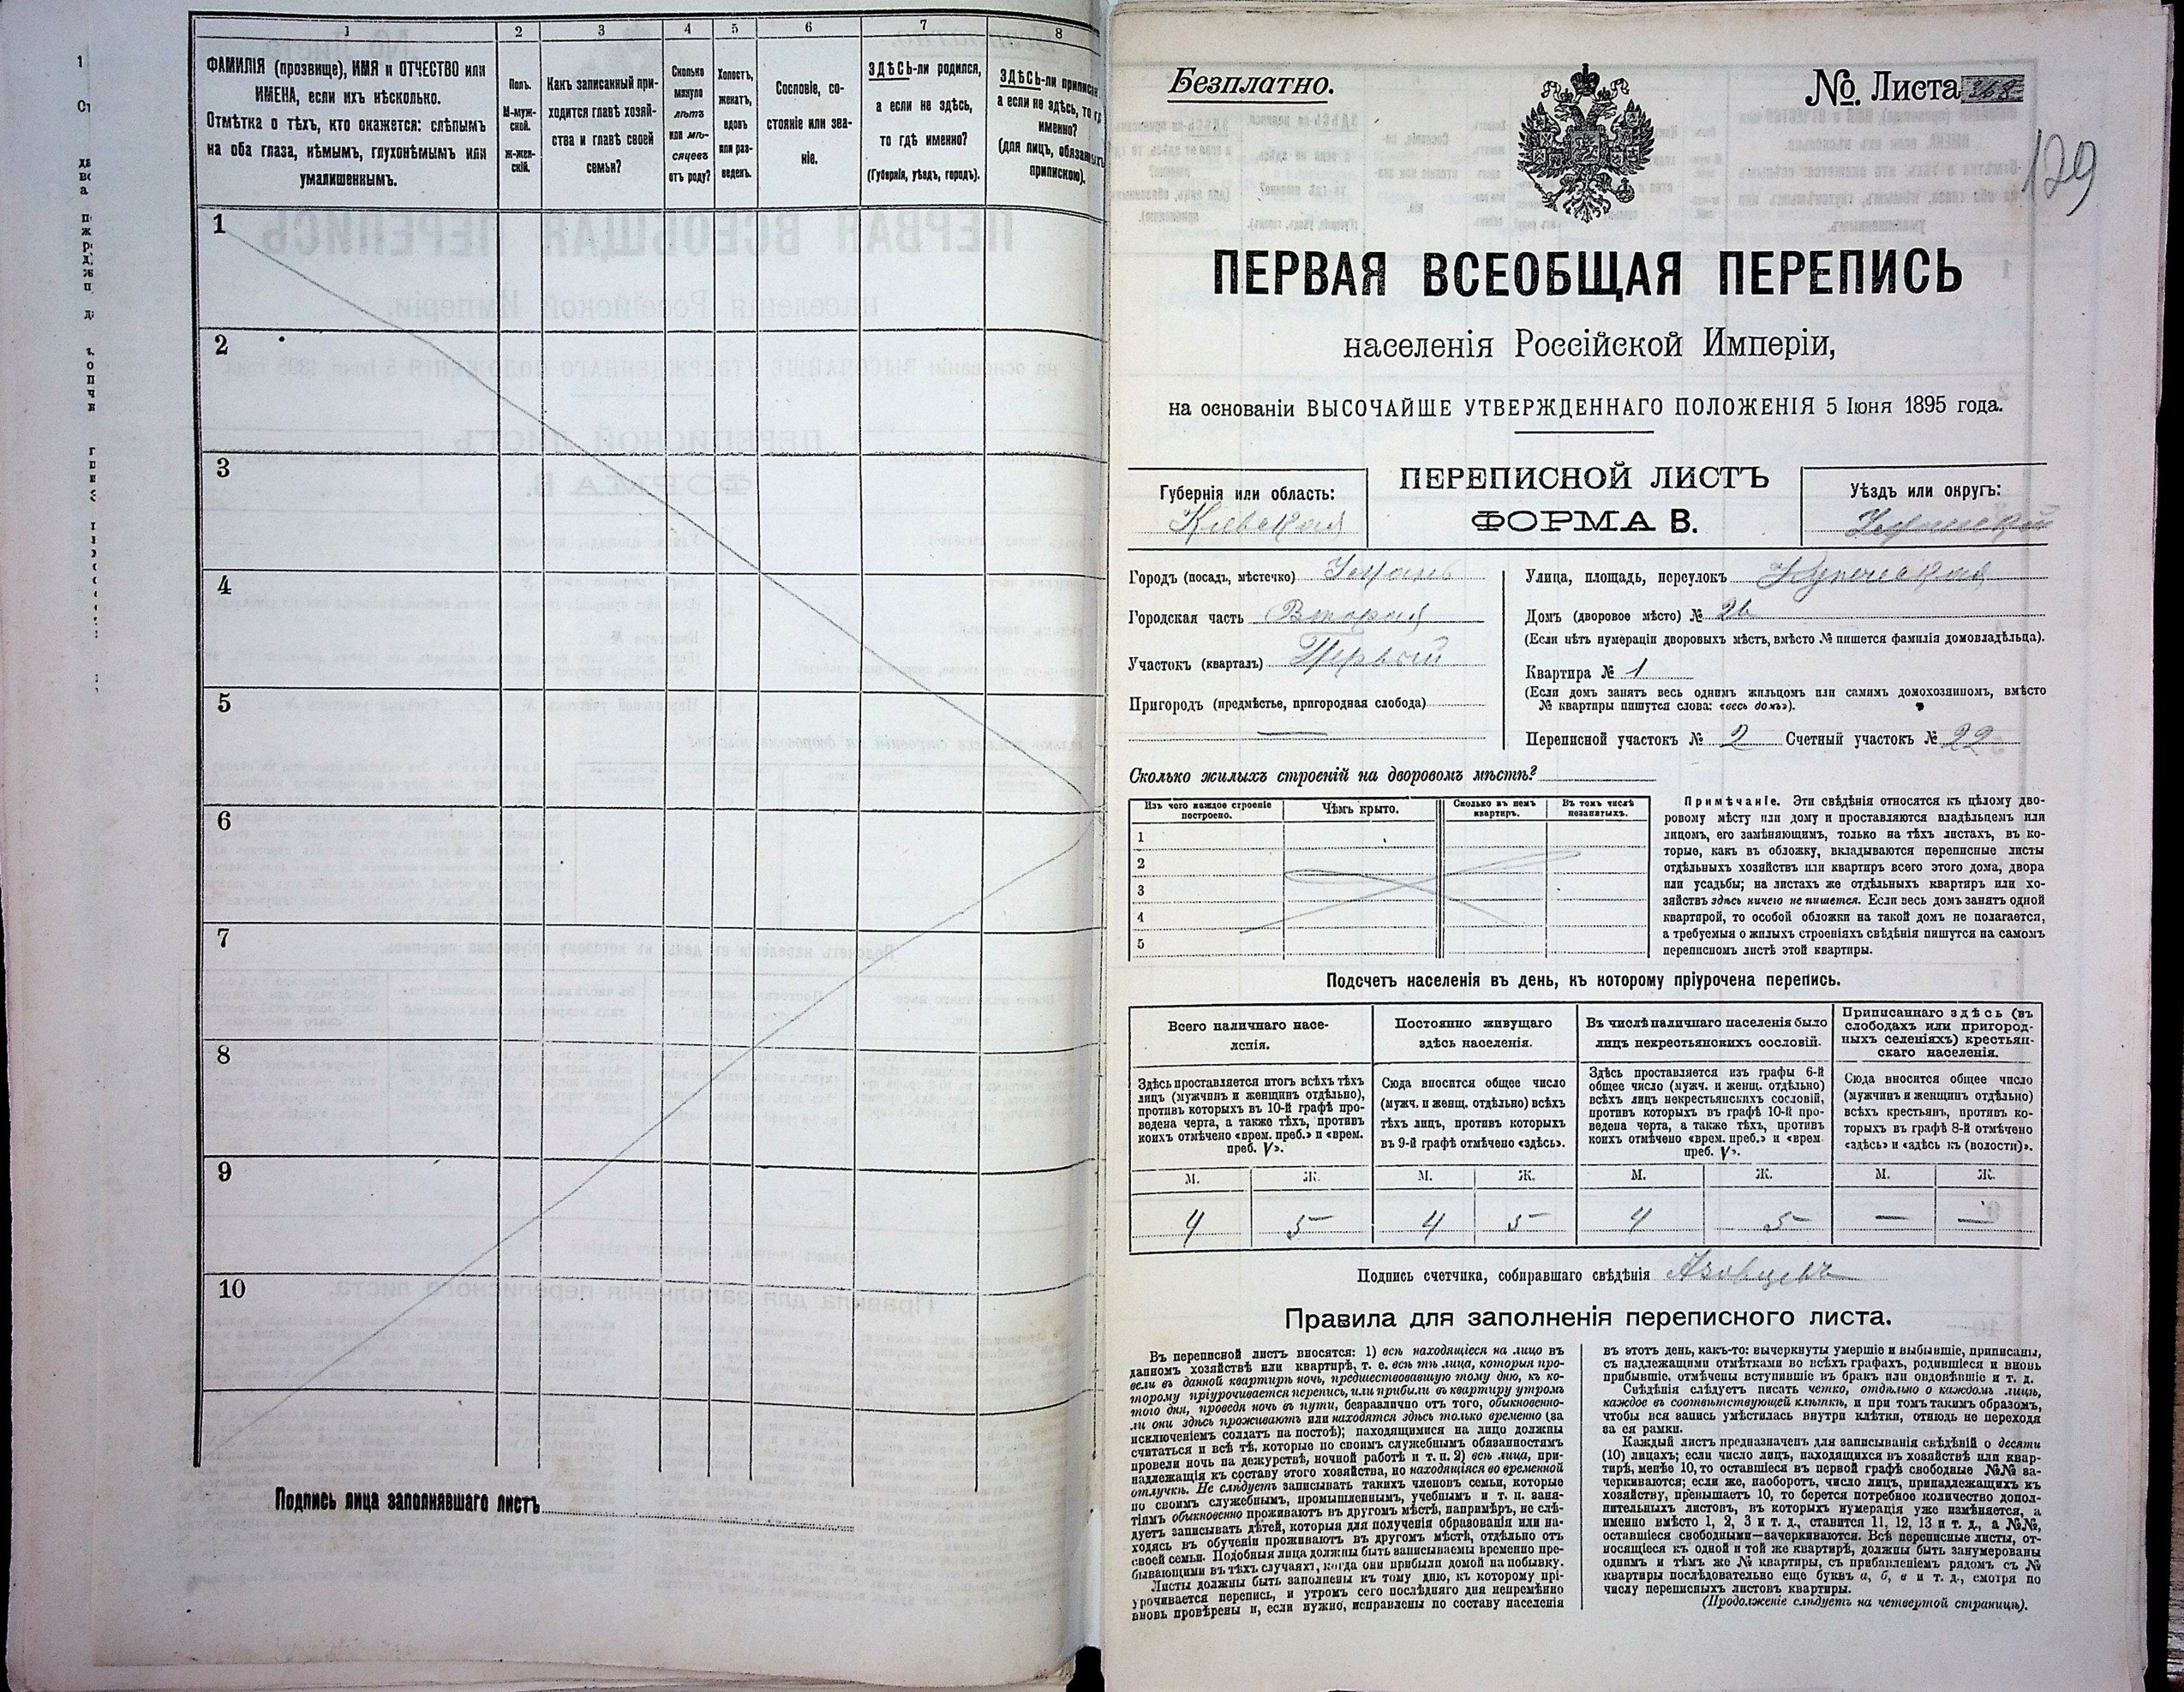 1 2 3 4 5 6 7 8
ФАМИЛІЯ (прозвище), ИМЯ и ОТЧЕСТВО или
ИМЕНА, если ихъ нѣсколько.
Отмѣтка о тѣхъ, кто окажется: слѣпымъ
на оба глаза, нѣмымъ, глухонѣмымъ или
умалишеннымъ.
Полъ.
М-муж-
ской.
Ж-жен-
скій.
Какъ записанный при-
ходится главѣ хозяй-
ства и главѣ своей
семьи?
Сколько
минуло
лѣтъ
или мѣ-
сяцевъ
отъ роду?
Холостъ,
женатъ,
вдовъ
или раз-
веденъ.
Сословіе, со-
стояніе или зва-
ніе.
ЗДѢСЬ-ли родился,
а если не здѣсь,
то гдѣ именно?
(Губернія, уѣздъ, городъ).
ЗДѢСЬ-ли приписан
а если не здѣсь, то гд
именно?
(для лицъ, обязанныхъ
припискою).
1
2
3
4
5
6
7
8
9
10
Подпись лица заполнявшаго листъ
Безплатно.
№. Листа 368
129
ПЕРВАЯ ВСЕОБЩАЯ ПЕРЕПИСЬ
населенія Россійской Имперіи,
на основаніи ВЫСОЧАЙШЕ УТВЕРЖДЕННАГО ПОЛОЖЕНІЯ 5 Іюня 1895 года.
Губернія или область:
Кіевская
ПЕРЕПИСНОЙ ЛИСТЪ
ФОРМА В.
Уѣздъ или округъ:
Уманскій
Городъ (посадъ, мѣстечко) Умань
Городская часть Вторая
Участокъ (кварталъ) Первый
Пригородъ (предмѣстье, пригородная слобода)
Улица, площадь, переулокъ
Домъ (дворовое мѣсто) №
(Если нѣтъ нумераціи дворовыхъ мѣстъ, вмѣсто № пишется фамилія домовладѣльца).
Квартира № 1
(Если домъ занятъ весь однимъ жильцомъ или самимъ домохозяиномъ, вмѣсто
№ квартиры пишутся слова: «весь домъ»).
Переписной участокъ № 2 Счетный участокъ № 22
Сколько жилыхъ строеній на дворовомъ мѣстѣ?
Изъ чего каждое строеніе
построено.
Чѣмъ крыто.
Сколько въ немъ
квартиръ.
Въ томъ числѣ
незанятыхъ.
1
2
3
4
5
Примѣчаніе. Эти свѣдѣнія относятся къ цѣлому дво-
ровому мѣсту или дому и проставляются владѣльцемъ или
лицомъ, его замѣняющимъ, только на тѣхъ листахъ, въ ко-
торые, какъ въ обложку, вкладываются переписные листы
отдѣльныхъ хозяйствъ или квартиръ всего этого дома, двора
или усадьбы; на листахъ же отдѣльныхъ квартиръ или хо-
зяйствъ здѣсь ничего не пишется. Если весь домъ занятъ одной
квартирой, то особой обложки на такой домъ не полагается,
а требуемыя о жилыхъ строеніяхъ свѣдѣнія пишутся на самомъ
переписномъ листѣ этой квартиры.
Подсчетъ населенія въ день, къ которому пріурочена перепись.
Всего наличнаго насе-
ленія.
Постоянно живущаго
здѣсь населенія.
Въ числѣ наличнаго населенія было
лицъ некрестьянскихъ сословій.
Приписаннаго здѣсь (въ
слободахъ или пригород-
ныхъ селеніяхъ) крестьян-
скаго населенія.
Здѣсь проставляется итогъ всѣхъ тѣхъ
лицъ (мужчинъ и женщинъ отдѣльно),
противъ которыхъ въ 10-й графѣ про-
ведена черта, а также тѣхъ, противъ
коихъ отмѣчено «врем. преб.» и «врем.
преб. V».
Сюда вносится общее число
(мужч. и женщ. отдѣльно) всѣхъ
тѣхъ лицъ, противъ которыхъ
въ 9-й графѣ отмѣчено «здѣсь».
Здѣсь проставляется изъ графы 6-й
общее число (мужч. и женщ. отдѣльно)
всѣхъ лицъ некрестьянскихъ сословій,
противъ которыхъ въ графѣ 10-й про-
ведена черта, а также тѣхъ, противъ
коихъ отмѣчено «врем. преб.» и «врем
преб. V».
Сюда вносится общее число
(мужчинъ и женщинъ отдѣльно)
всѣхъ крестьянъ, противъ ко-
торыхъ въ графѣ 8-й отмѣчено
«здѣсь» и «здѣсь къ (волости)».
М. Ж. М. Ж. М. Ж. М. Ж.
4 5 4 5 4 5 — —
Подпись счетчика, собиравшаго свѣдѣнія
Правила для заполненія переписного листа.
Въ переписной листъ вносятся: 1) всѣ находящіеся на лицо въ
данномъ хозяйствѣ или квартирѣ, т. е. всѣ тѣ лица, которыя про-
вели въ данной квартирѣ ночь, предшествовавшую тому дню, къ ко-
торому пріурочивается перепись, или прибыли въ квартиру утромъ
того дня, проведя ночь въ пути, безразлично отъ того, обыкновенно-
ли они здѣсь проживаютъ или находятся здѣсь только временно (за
исключеніемъ солдатъ на постоѣ); находящимися на лицо должны
считаться и всѣ тѣ, которые по своимъ служебнымъ обязанностямъ
провели ночь на дежурствѣ, ночной работѣ и т. п. 2) всѣ лица, при-
надлежащія къ составу этого хозяйства, но находящіяся во временной
отлучкѣ. Не слѣдуетъ записывать такихъ членовъ семьи, которые
по своимъ служебнымъ, промышленнымъ, учебнымъ и т. п. заня-
тіямъ обыкновенно проживаютъ въ другомъ мѣстѣ, напримѣръ, не слѣ-
дуетъ записывать дѣтей, которыя для полученія образованія или на-
ходясь въ обученіи проживаютъ въ другомъ мѣстѣ, отдѣльно отъ
своей семьи. Подобныя лица должны быть записываемы временно пре-
бывающими въ тѣхъ случаяхъ, когда они прибыли домой на побывку.
Листы должны быть заполнены къ тому дню, къ которому прі-
урочивается перепись, и утромъ сего послѣдняго дня непремѣнно
вновь провѣрены и, если нужно, исправлены по составу населенія
въ этотъ день, какъ-то: вычеркнуты умершіе и выбывшіе, приписаны,
съ надлежащими отмѣтками во всѣхъ графахъ, родившіеся и вновь
прибывшіе, отмѣчены вступившіе въ бракъ или овдовѣвшіе и т. д.
Свѣдѣнія слѣдуетъ писать четко, отдѣльно о каждомъ лицѣ,
каждое въ соотвѣтствующей клѣткѣ, и при томъ такимъ образомъ,
чтобы вся запись умѣстилась внутри клѣтки, отнюдь не переходя
за ея рамки.
Каждый листъ предназначенъ для записыванія свѣдѣній о десяти
(10) лицахъ; если число лицъ, находящихся въ хозяйствѣ или квар-
тирѣ, менѣе 10, то оставшіеся въ первой графѣ свободные №№ за-
черкиваются; если же, наоборотъ, число лицъ, принадлежащихъ къ
хозяйству, превышаетъ 10, то берется потребное количество допол-
нительныхъ листовъ, въ которыхъ нумерація уже измѣняется, а
именно вмѣсто 1, 2, 3 и т. д., ставится 11, 12, 13 и т. д., а №№,
оставшіеся свободными—зачеркиваются. Всѣ переписные листы, от-
носящіеся къ одной и той же квартирѣ, должны быть занумерованы
однимъ и тѣмъ же № квартиры, съ прибавленіемъ рядомъ съ №
квартиры послѣдовательно еще буквъ а, б, в и т. д., смотря по
числу переписныхъ листовъ квартиры.
(Продолженіе слѣдуетъ на четвертой страницѣ).